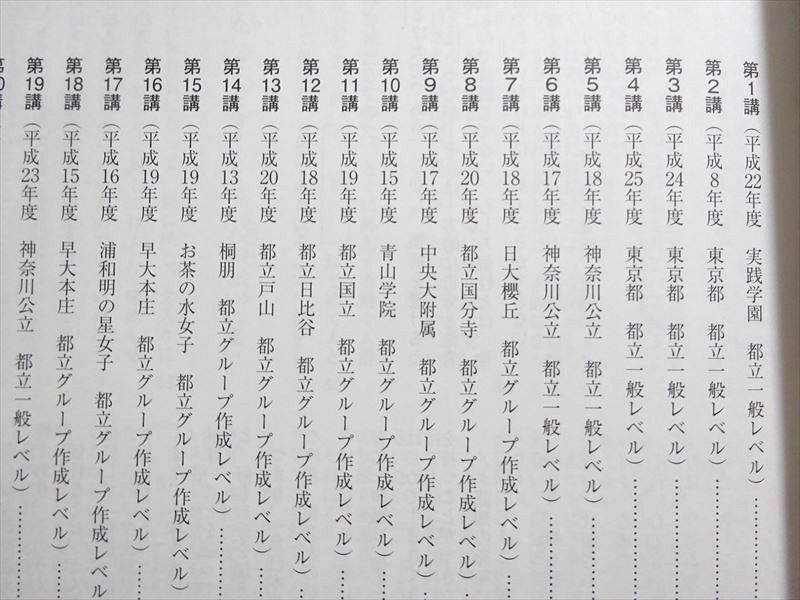 第1講（平成22年度　実践学園　都立一般レベル）…………
第2講（平成8年度　東京都　都立一般レベル）…………
第3講（平成24年度　東京都　都立一般レベル）…………
第4講（平成25年度　東京都　都立一般レベル）…………
第5講（平成18年度　神奈川公立　都立一般レベル）………
第6講（平成17年度　神奈川公立　都立一般レベル）………
第7講（平成18年度　日大櫻丘　都立グループ作成レベル）……
第8講（平成20年度　都立国分寺　都立グループ作成レベル）…
第9講（平成17年度　中央大附属　都立グループ作成レベル）…
第10講（平成15年度　青山学院　都立グループ作成レベル）…
第11講（平成19年度　都立国立　都立グループ作成レベル）…
第12講（平成18年度　都立日比谷　都立グループ作成レベル）…
第13講（平成20年度　都立戸山　都立グループ作成レベル）…
第14講（平成13年度　桐朋　都立グループ作成レベル）………
第15講（平成19年度　お茶の水女子　都立グループ作成レベル）
第16講（平成19年度　早大本庄　都立グループ作成レベル）…
第17講（平成16年度　浦和明の星女子　都立グループ作成レベル
第18講（平成15年度　早大本庄　都立グループ作成レベル）…
第19講（平成23年度　神奈川公立　都立一般レベル）…………